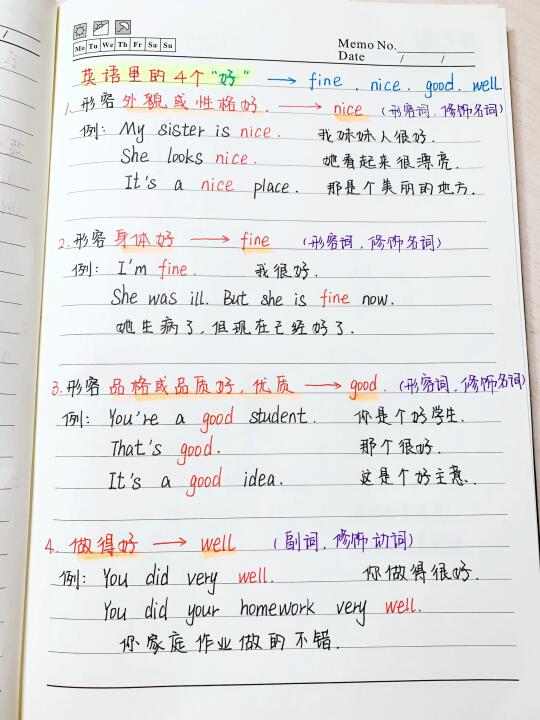 Mo Tu We Th Fr Sa Su
Memo No.
Date / /
英语里的4个"好" → fine . nice . good . well.
1. 形容外貌或性格好. → nice (形容词,修饰名词)
例: My sister is nice. 我妹妹人很好.
She looks nice. 她看起来很漂亮.
It's a nice place. 那是个美丽的地方.
2. 形容身体好 → fine (形容词,修饰名词)
例: I'm fine. 我很好.
She was ill. But she is fine now.
她生病了,但现在已经好了.
3. 形容品格或品质好,优质 → good. (形容词,修饰名词)
例: You're a good student. 你是个好学生.
That's good. 那个很好.
It's a good idea. 这是个好主意.
4. 做得好 → well (副词,修饰动词)
例: You did very well. 你做得很好.
You did your homework very well.
你家庭作业做的不错.